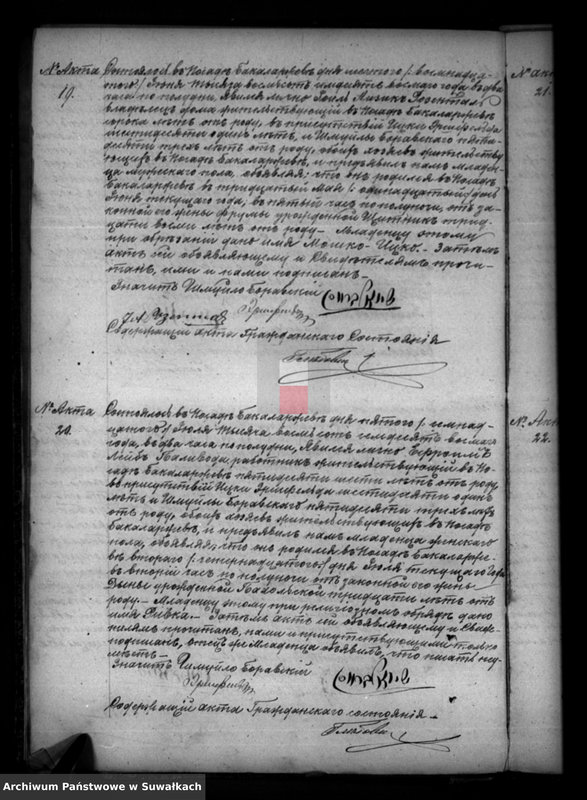 № Акта
19.
Состоялось въ Посадѣ Бакаларжевѣ дня шестого /: восемнадца
того :/ Іюня тысяча восемьсотъ семдесятъ восьмаго года, въ два
часа по полудни, явился лично
владѣлецъ дома жительствующій въ Посадѣ Бакаларжевѣ
сорока лѣтъ отъ роду, въ присутствіи Ицки
шестидесяти одинъ лѣтъ, и Шмуйлы Боравскаго пяти-
десяти трехъ лѣтъ отъ роду, обоихъ хозяевъ жительству-
ющихъ въ Посадѣ Бакаларжевѣ, и предъявилъ намъ младен-
ца мужескаго пола, объявляя: что онъ родился въ Посадѣ
Бакаларжевѣ въ тридцатый Мая /: одинадцатый :/ день
Іюня текущаго года, въ пятый часъ по полуночи, отъ за-
конной его жены урожденной трид-
цати восьми лѣтъ отъ роду. Младенцу этому
при обрѣзаніи дано имя Мошко-Ицко. Затѣмъ
актъ сей объявляющему и свидѣтелямъ прочи-
танъ, ими и нами подписанъ.
Значитъ Шмуйло Боравскій
Содержащій акты Гражданскаго Состоянія
№ Акта
20.
Состоялось въ Посадѣ Бакаларжевѣ дня пятого /: семнад-
цатого :/ Іюля тысяча восемьсотъ семдесятъ восьмаго
года, въ два часа по полудни, явился лично
Лейбъ работникъ жительствующій въ По-
садѣ Бакаларжевѣ пятидесяти шести лѣтъ отъ роду,
въ присутствіи Ицки шестидесяти одинъ
лѣтъ и Шмуйлы Боравскаго пятидесяти трехъ лѣтъ
отъ роду, обоихъ хозяевъ жительствующихъ въ Посадѣ
Бакаларжевѣ, и предъявилъ намъ младенца женскаго
пола, объявляя: что оно родилось въ Посадѣ Бакаларже-
вѣ втораго /: четырнадцатого :/ дня Іюля текущаго года
въ второй часъ по полуночи отъ законной его жены
урожденной тридцати лѣтъ отъ
роду. Младенцу этому при религіозномъ обрядѣ дано
имя Ривка. Затѣмъ актъ сей объявляющему и свидѣ-
телямъ прочитанъ, нами и присутствующими только
подписанъ, отецъ же младенца объявилъ, что писать не у-
мѣетъ.
Значитъ Шмуйло Боравскій
Содержащій акты Гражданскаго состоянія
№ Акт
21.
№ Акт
22.
Archiwum Państwowe w Suwałkach